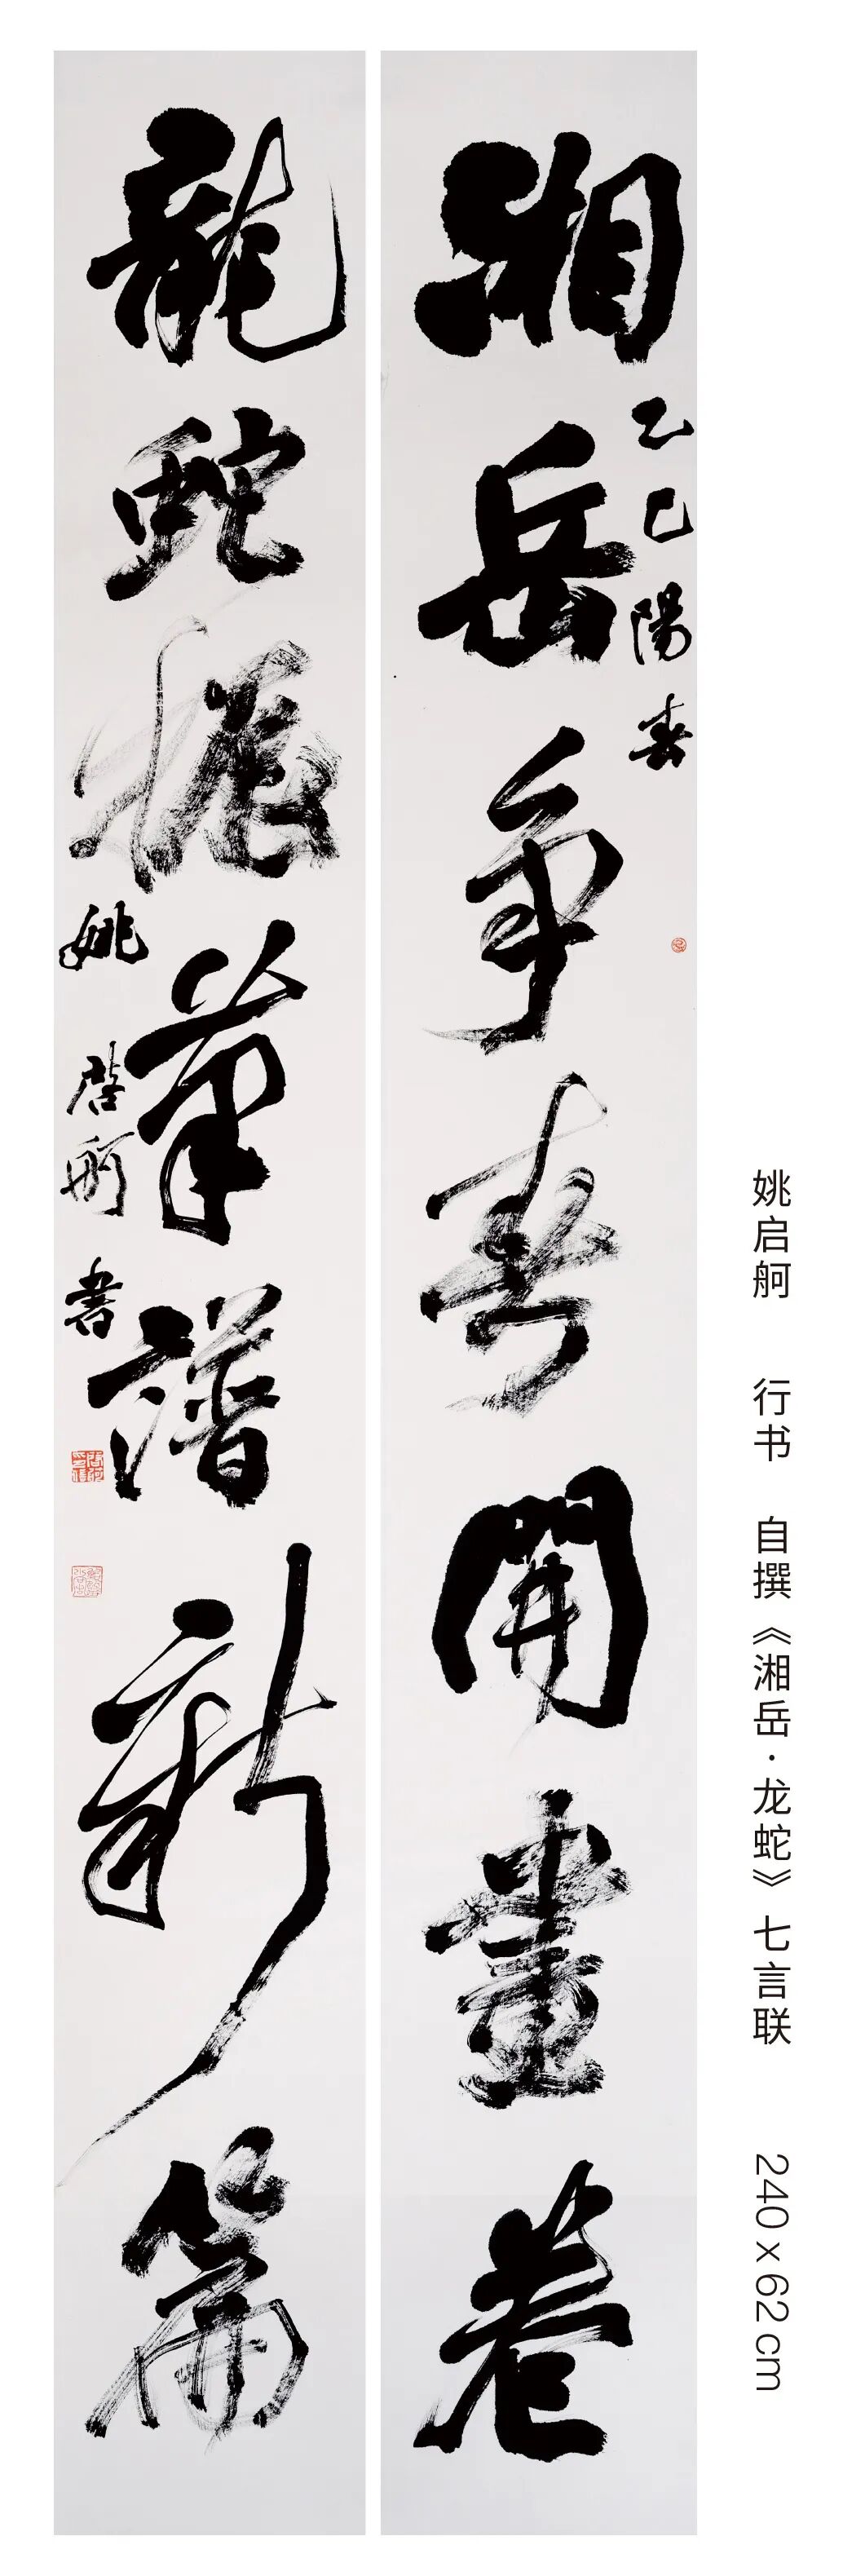 湘岳争春開畫卷
乙巳陽春
龍蛇振筆譜新篇
姚啓舸書
姚启舸 行书 自撰《湘岳·龙蛇》七言联 240 x 62 cm